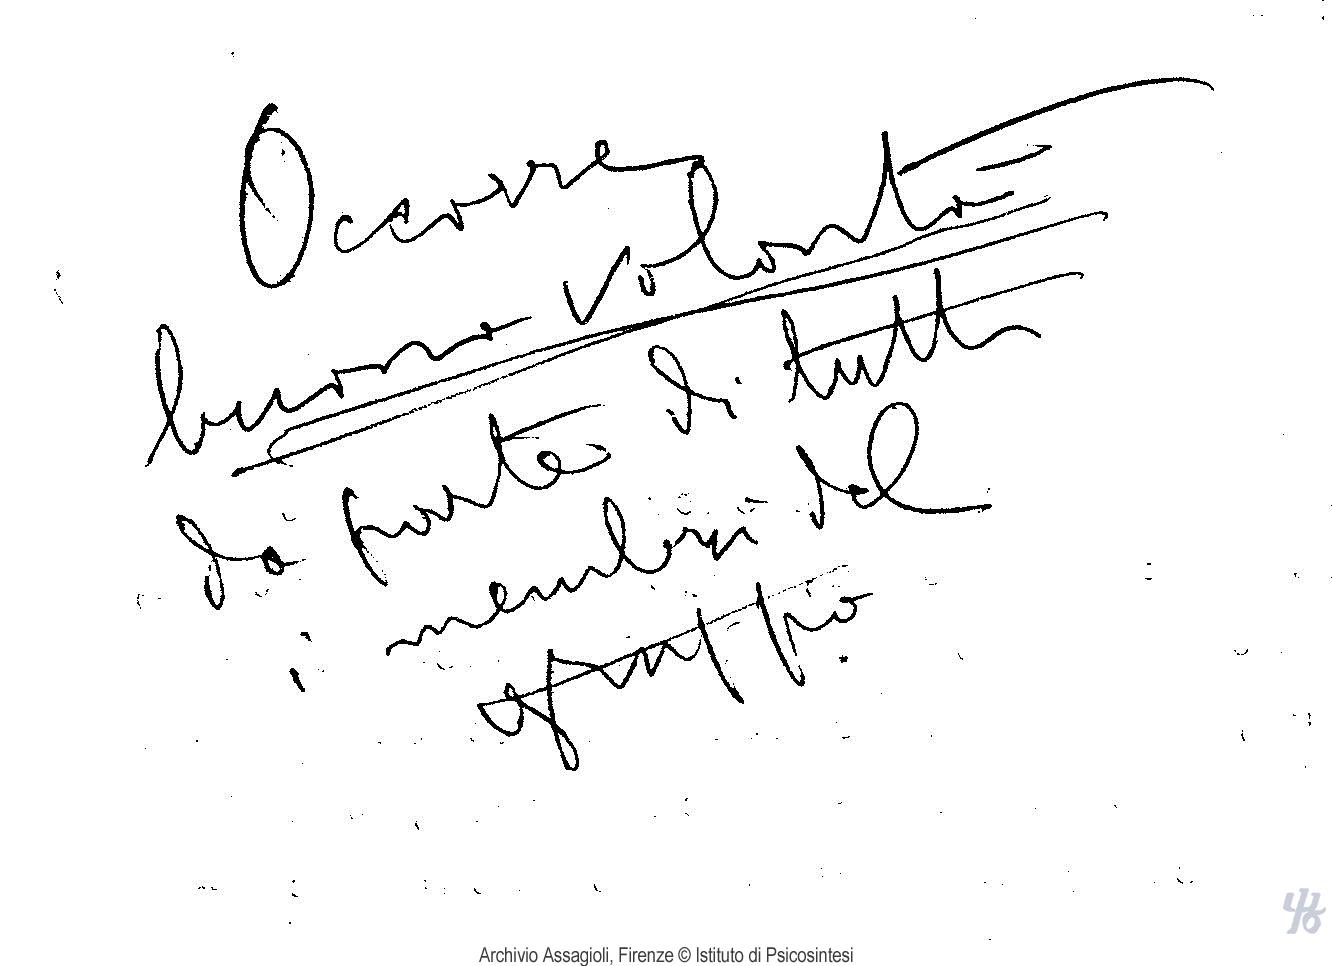 Occorre
buona volontà
da parte di tutti
i membri del
gruppo.
Archivio Assagioli, Firenze © Istituto di Psicosintesi